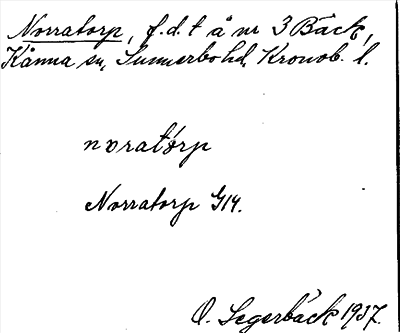 Norratorp, f.d. t å nr 3 Bäck,
Kånna sn, Sunnerbo hd, Kronob. l.
noratórp
Norratorp G14.
O. Segerbäck 1937.